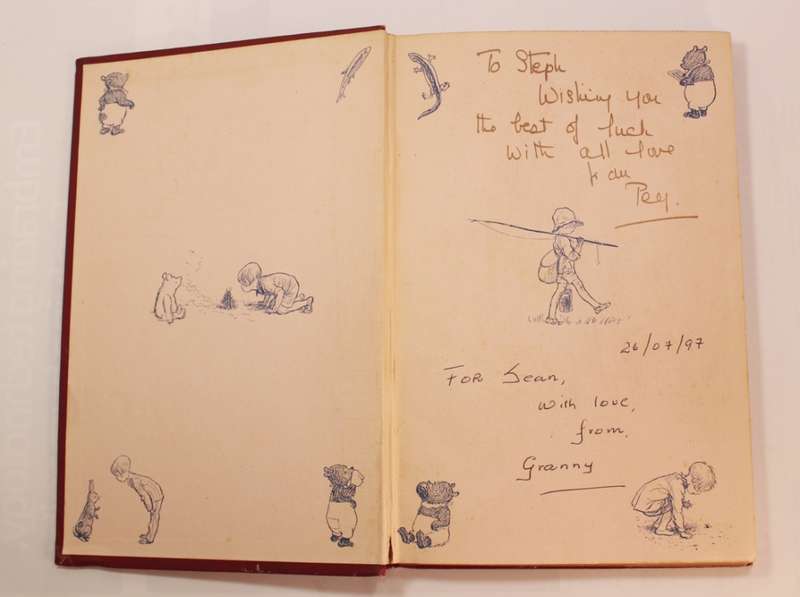 To Steph
Wishing you
the best of luck
with all love
from
Peg.
26/07/97
FOR Sean,
with love,
from,
Granny